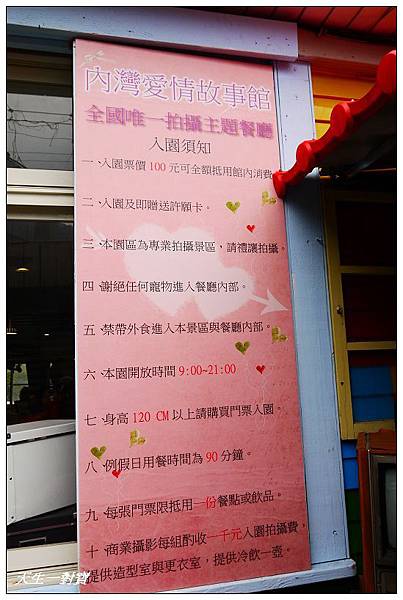 內灣愛情故事館
全國唯一拍攝主題餐廳
入園須知
一、入園票價100元可全額抵用館內消費
二、入園及即贈送許願卡。
三、本園區為專業拍攝景區，請禮讓拍攝。
四、謝絕任何寵物進入餐廳內部。
五、禁帶外食進入本景區與餐廳內部。
六、本園開放時間9:00~21:00
七、身高120 CM以上請購買門票入園。
八、例假日用餐時間為90分鐘。
九、每張門票限抵用一份餐點或飲品。
十、商業攝影每組酌收一千元入園拍攝費，
提供造型室與更衣室，提供冷飲一壺。
大生一對寶